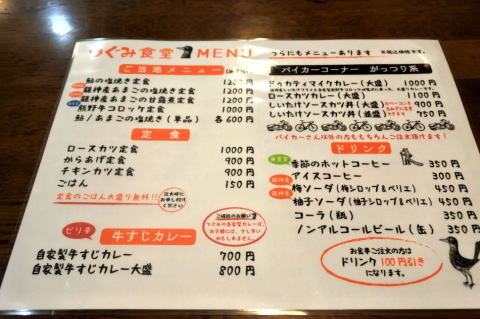 つぐみ食堂 MENU うらにもメニューあります
ご当地メニュー
鮎の塩焼き定食 1200円
龍神産あまごの塩焼き定食 1200円
龍神産あまごの甘露煮定食 1200円
熊野牛コロッケ定食 1000円
鮎/あまごの塩焼き(単品) 各600円
定食
ロースカツ定食 1000円
からあげ定食 900円
チキンカツ定食 900円
ごはん 150円
定食のごはん大盛り無料!!
注文時に
お申し付け
ください
ピリ辛
牛すじカレー
ご確認のお願い
つぐみの自家製カレーは、
お子様には、少し辛い
かもしれません。
自家製牛すじカレー 700円
自家製牛すじカレー大盛 800円
バイカーコーナー がっつり系
ドゥカティマイクカレー(大盛) 1000円
ロースカツカレー(大盛) 1100円
しいたけソースカツ丼(大盛) 900円
しいたけソースカツ丼(並盛) 750円
バイカーさん以外の方ももちろんご注文頂けます!
ドリンク
季節のホットコーヒー 350円
アイスコーヒー 300円
梅ソーダ(梅シロップ&ペリエ) 450円
柚子ソーダ(柚子シロップ&ペリエ) 450円
コーラ(瓶) 350円
ノンアルコールビール(缶) 350円
お食事ご注文の方は
ドリンク100円引き
になります。